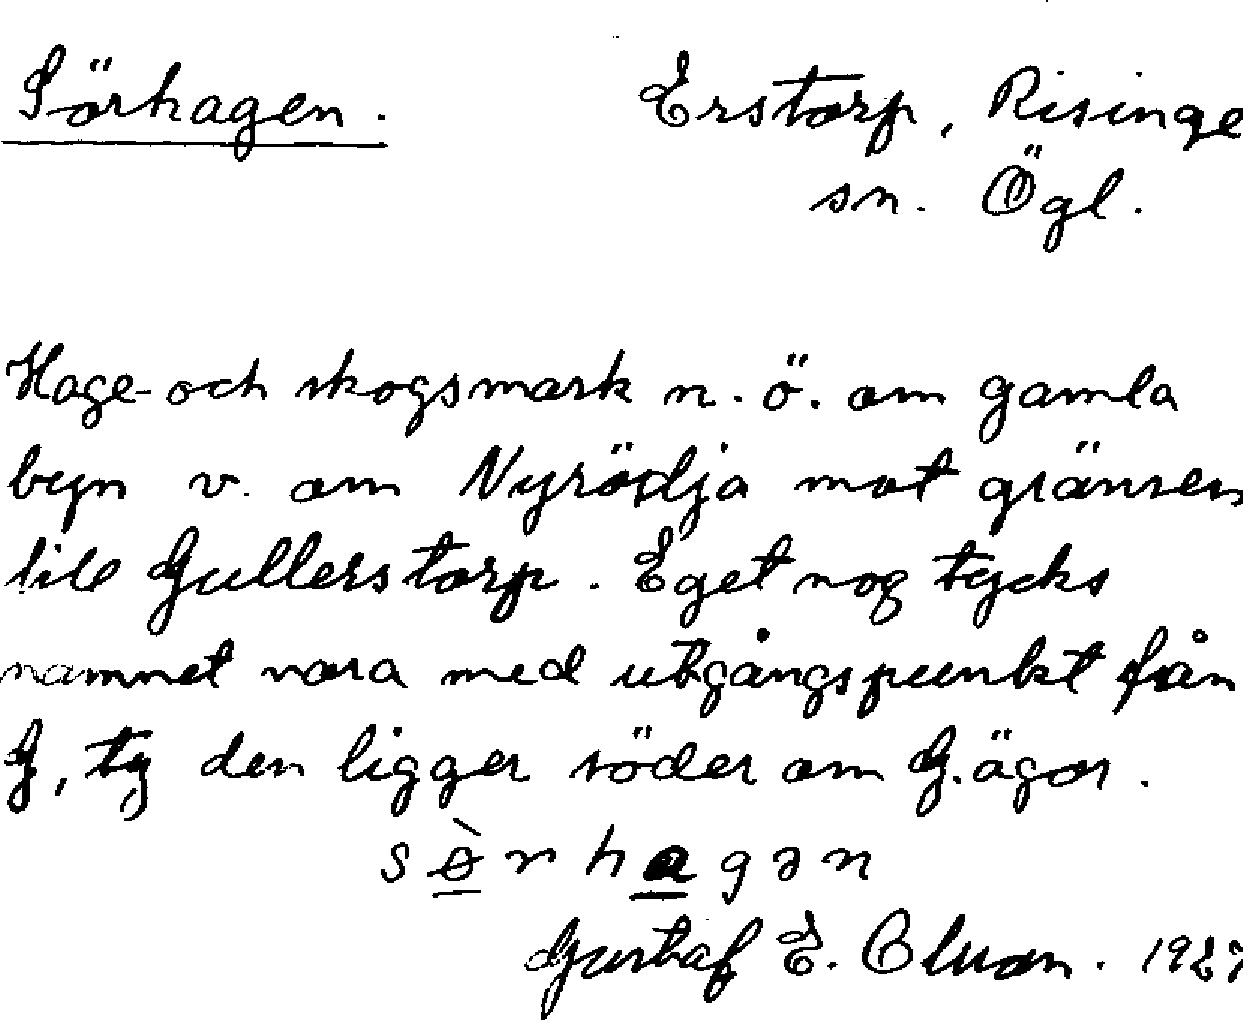 Sörhagen. Erstorp, Risinge
sn. Ögl.
Hage- och skogsmark n.ö. om gamla
byn v. om Nyrödja mot gränsen
till Gullerstorp. Eget nog tycks
namnet vara med utgångspunkt från
G, ty den ligger söder om G. ägor.
sø̀rhagən
Gustaf E. 1927